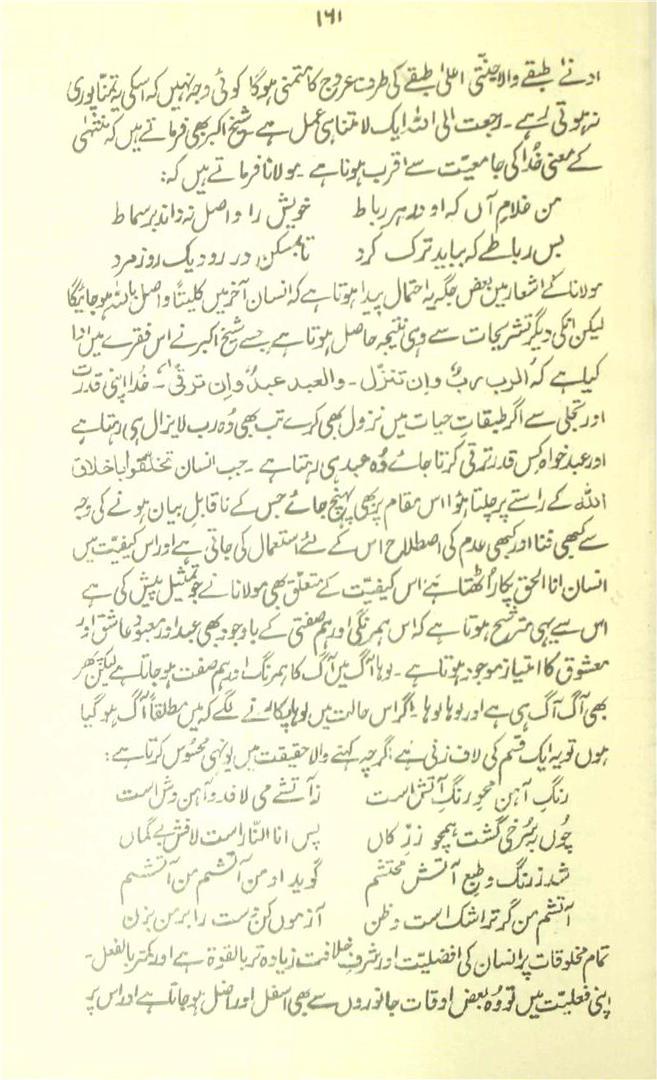 ۱۶۱
ادنےٰ طبقے والا جنتی اعلیٰ طبقے کی طرف عروج کا متمنی ہوگا کوئی وجہ نہیں کہ اسکی یہ تمنا پوری
نہ ہوتی رہے۔ رجعت الی اللہ ایک لامتناہی عمل ہے۔ شیخ اکبر بھی فرماتے ہیں کہ منتہٰی
کے معنی خدا کی جامعیت سے اقرب ہونا ہے۔ مولانا فرماتے ہیں کہ:
من غلامِ آں کہ او در ہر رباط خویش را واصل نہ داند بر سماط
بس رباطے کہ بباید ترک کرد تا بمسکن در رود یک روز مرد
مولانا کے اشعار میں بعض جگہ یہ احتمال پیدا ہوتا ہے کہ انسان آخر میں کلیتًا واصل باللہ ہو جائیگا
لیکن انکی دیگر تشریحات سے وہی نتیجہ حاصل ہوتا ہے جسے شیخ اکبر نے اس فقرے میں ادا
کیا ہے کہ الرب ربٌ وان تنزّل۔ والعبد عبدٌ وان ترقیٰ۔ خدا اپنی قدرت
اور تجلی سے اگر طبقاتِ حیات میں نزول بھی کرے تب بھی وُہ رب لایزال ہی رہتا ہے
اور عبد خواہ کس قدر ترقی کرتا جائے وُہ عبد ہی رہتا ہے۔ جب انسان تخلقوا باخلاق
اللہ کے راستے پر چلتا ہُوا اس مقام پر بھی پہنچ جائے جس کے ناقابلِ بیان ہونے کی وجہ
سے کبھی فنا اور کبھی عدم کی اصطلاح اس کے لئے استعمال کی جاتی ہے اور اس کیفیت میں
انسان انا الحق پکار اُٹھتا ہے اس کیفیّت کے متعلق بھی مولانا نے جو تمثیل پیش کی ہے
اس سے یہی مترشح ہوتا ہے کہ اس ہمرنگی اور ہم صفتی کے باوجود بھی عبد اور معبود عاشق اور
معشوق کا امتیاز موجود ہوتا ہے۔ لوہا آگ میں آگ کا ہمرنگ اور ہم صفت ہو جاتا ہے لیکن پھر
بھی آگ آگ ہی ہے اور لوہا لوہا۔ اگر اس حالت میں لوہا پکارنے لگے کہ میں مطلقاً آگ ہو گیا
ہوں تو یہ ایک قسم کی لاف زنی ہے اگرچہ کہنے والا حقیقت میں یونہی محسوس کرتا ہے:
رنگِ آہن محوِ رنگِ آتش است زآتشے می لافد و آہن وش است
چُوں بہ سُرخی گشت ہمچو زرِّ کاں پس انا النّار است لافش بے گماں
شد ز رنگ و طبع آتش محتشم گوید او من آتشم من آتشم
آتشم من گر ترا شک است و ظن آزموں کن دست را بر من بزن
تمام مخلوقات پر انسان کی افضلیّت اور شرفِ خلافت زیادہ تر بالقوۃ ہے اور کمتر بالفعل۔
اپنی فعلیّت میں تو وُہ بعض اوقات جانوروں سے بھی اسفل اور اضل ہو جاتا ہے اور اس پر